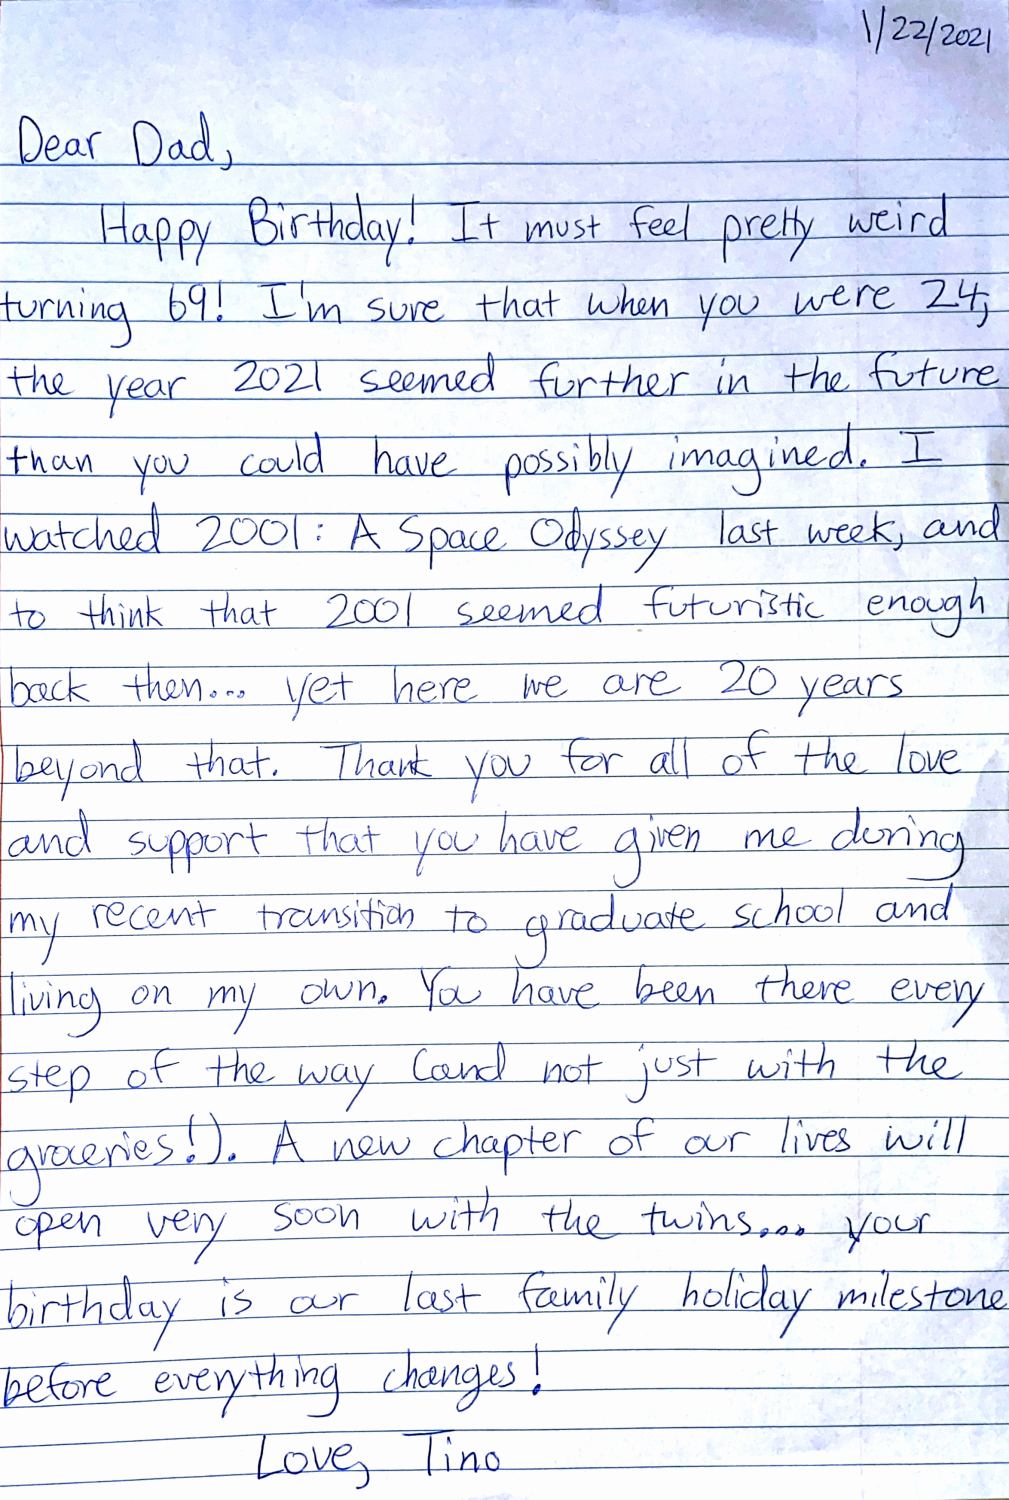 1/22/2021
Dear Dad,
Happy Birthday! It must feel pretty weird
turning 69! I'm sure that when you were 24,
the year 2021 seemed further in the future
than you could have possibly imagined. I
watched 2001: A Space Odyssey last week, and
to think that 2001 seemed futuristic enough
back then... yet here we are 20 years
beyond that. Thank you for all of the love
and support that you have given me during
my recent transition to graduate school and
living on my own. You have been there every
step of the way (and not just with the
groceries!). A new chapter of our lives will
open very soon with the twins... your
birthday is our last family holiday milestone
before everything changes!
Love, Tino